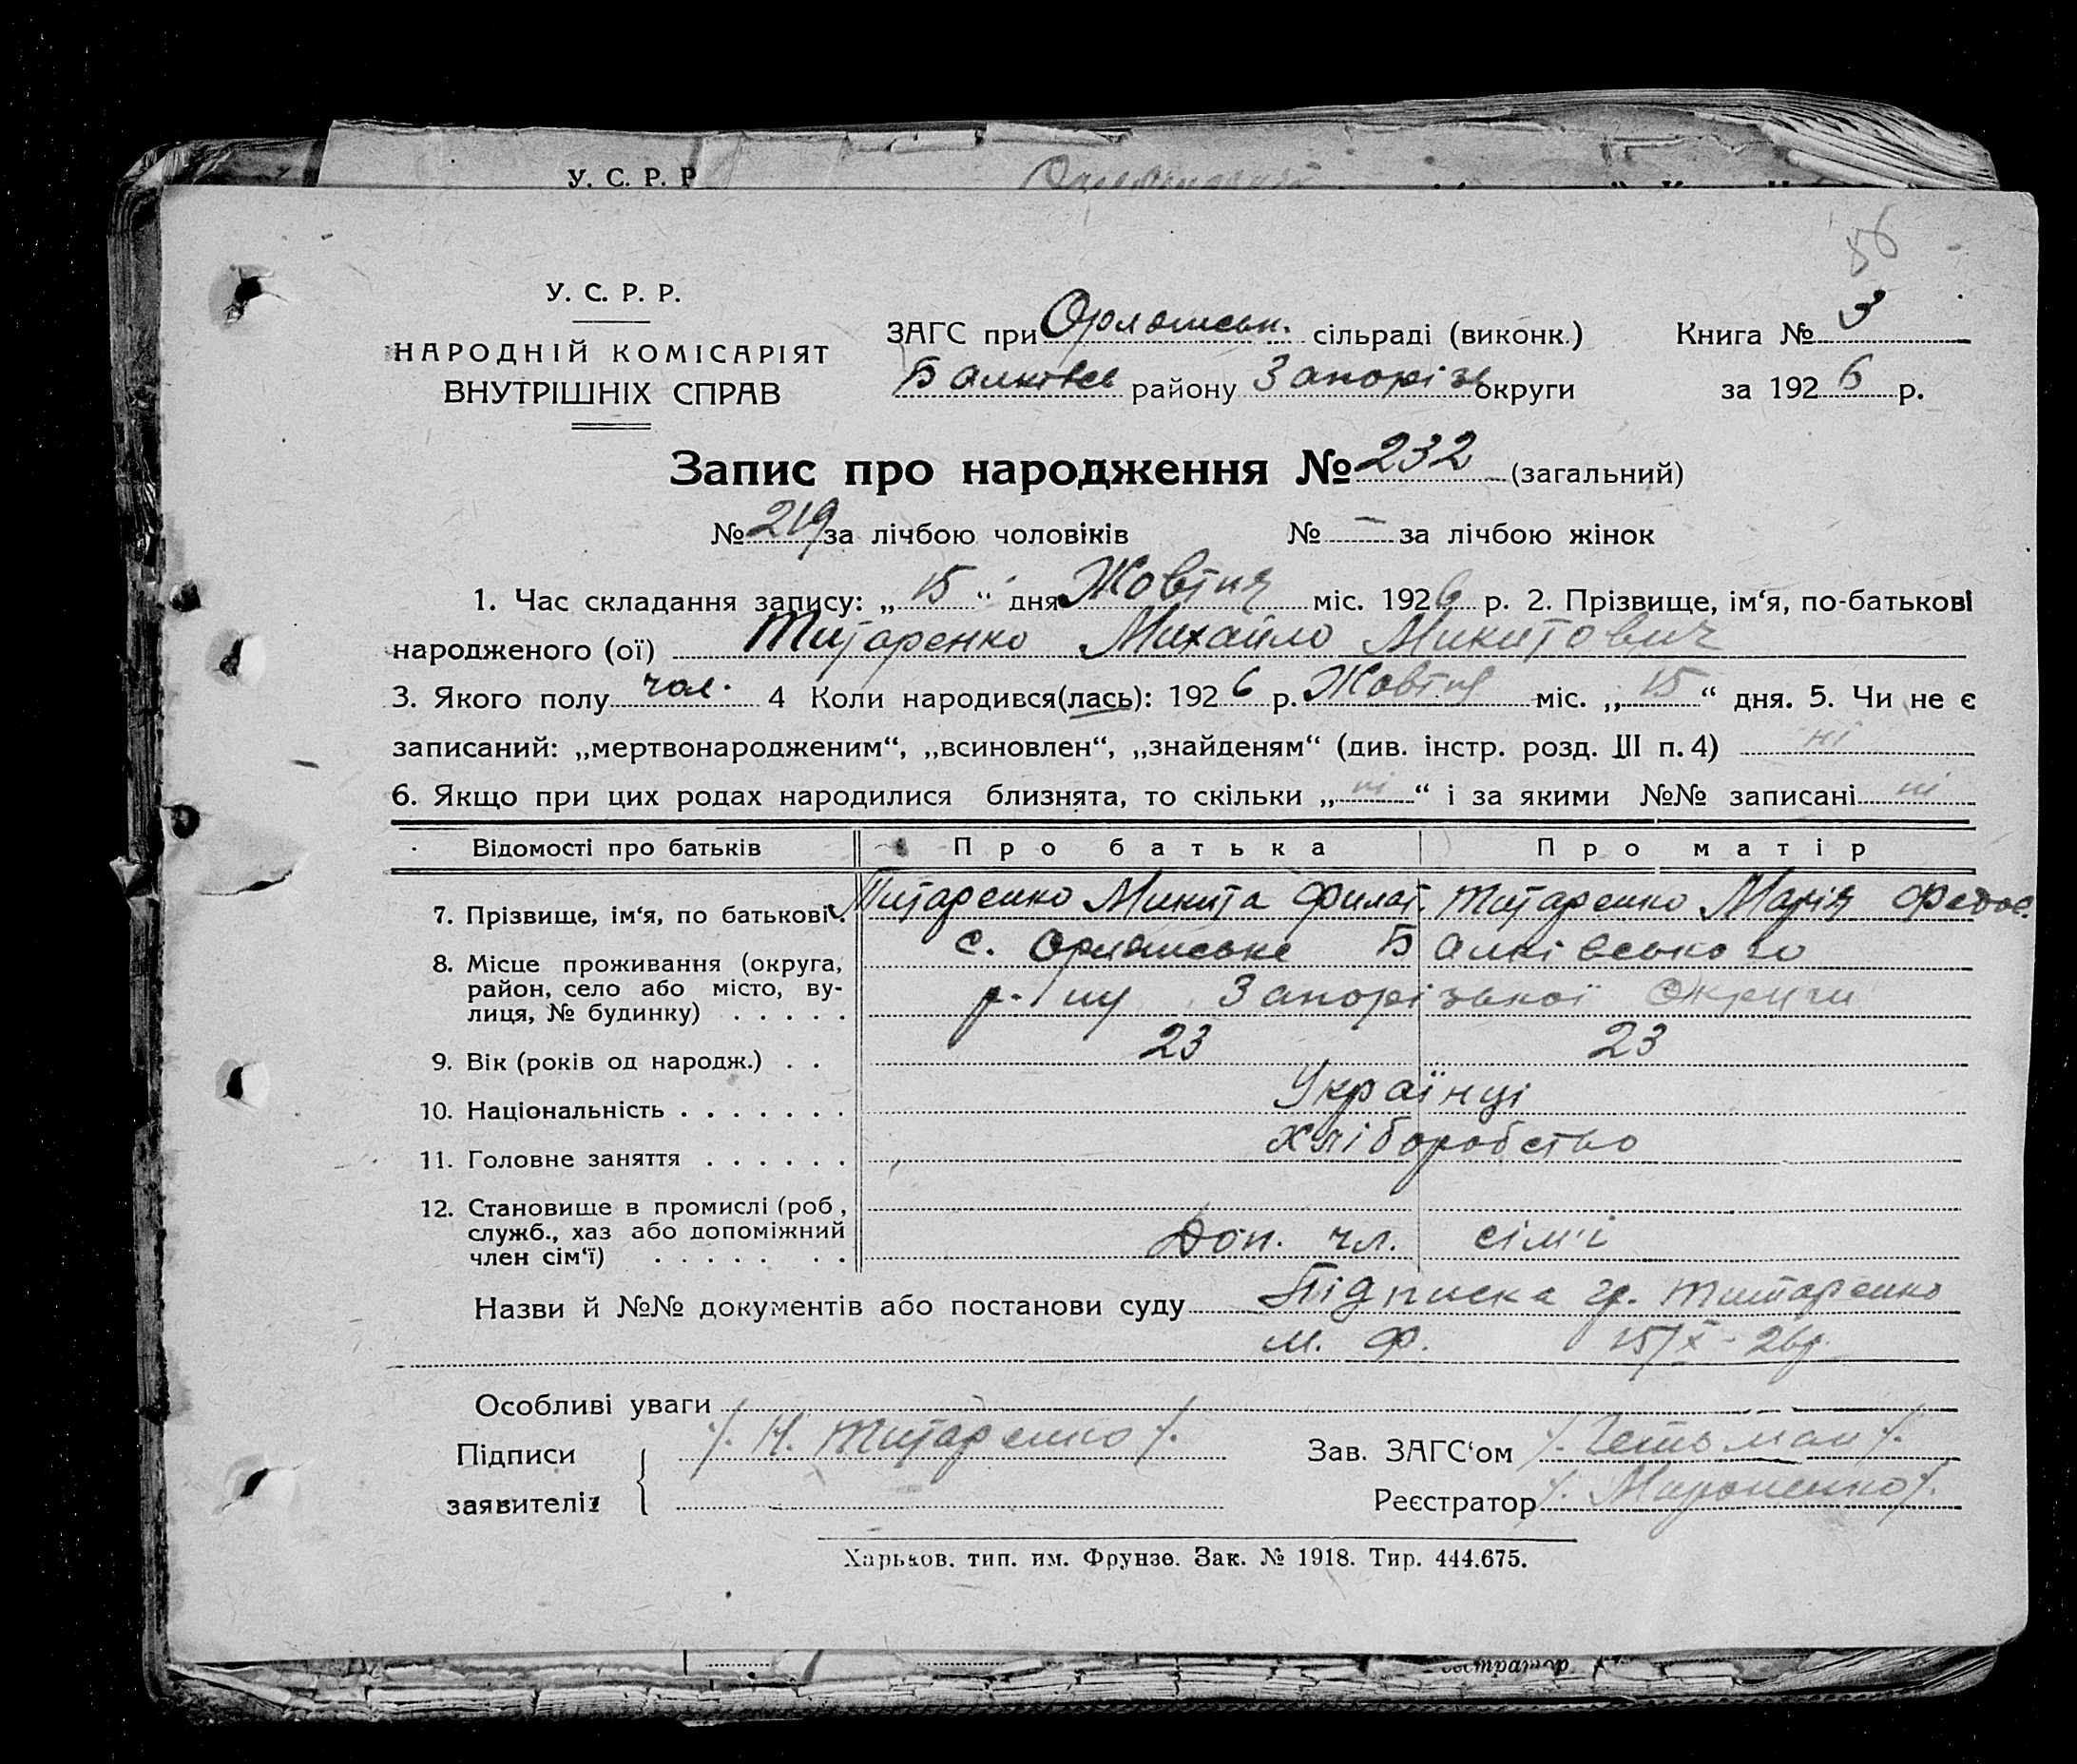 У. С. Р. Р
56
У. С. Р. Р.
НАРОДНІЙ КОМІСАРІЯТ
ВНУТРІШНІХ СПРАВ
ЗАГС при Орлянськ. сільраді (виконк.)
Балківсь району Запорізь округи
Книга № 3
за 1926 р.
Запис про народження № 232 (загальний)
№ 219 за лічбою чоловіків № — за лічбою жінок
1. Час складання запису: „15“ дня Жовтня міс. 1926 р. 2. Прізвище, ім‘я, по-батькові
народженого (ої) Титаренко Михайло Микитович
3. Якого полу чол. 4 Коли народився(лась): 1926 р. Жовтня міс. „15“ дня. 5. Чи не є
записаний: „мертвонародженим“, „всиновлен“, „знайденям“ (див. інстр. розд. III п. 4) ні
6. Якщо при цих родах народилися близнята, то скільки „ні“ і за якими №№ записані ні
Відомості про батьків Про батька Про матір
7. Прізвище, ім‘я, по батькові. Титаренко Микита Филат. Титаренко Марія Федос.
8. Місце проживання (округа, район, село або місто, вулиця, № будинку) . . . . .
с. Орлянське Балківського
р-ну Запорізької Округи
9. Вік (років од народж.) . . 23 23
10. Національність . . . . . . . Українці
11. Головне заняття . . . . . . Хліборобство
12. Становище в промислі (роб, служб., хаз або допоміжний член сім‘ї) . . . . . . .
Доп. чл. сім'ї
Назви й №№ документів або постанови суду Підписка гр. Титаренко
М. Ф. 15/X-26р.
Особливі уваги
Підписи /. Н. Титаренко /. Зав. ЗАГС‘ом /. Гетьман /.
заявителів Реєстратор /. Мироненко /.
Харьков. тип. им. Фрунзе. Зак. № 1918. Тир. 444.675.